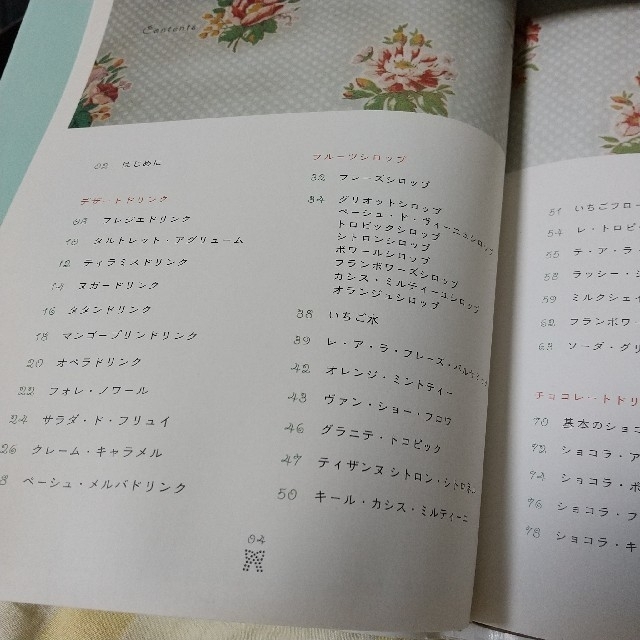 Contents
02 はじめに
デザートドリンク
08 フレジエドリンク
10 タルトレット・アグリューム
12 ティラミスドリンク
14 ヌガードリンク
16 タタンドリンク
18 マンゴープリンドリンク
20 オペラドリンク
22 フォレ・ノワール
24 サラダ・ド・フリュイ
26 クレーム・キャラメル
8 ペーシュ・メルバドリンク
フルーツシロップ
32 フレーズシロップ
34 グリオットシロップ
ペーシュ・ド・ヴィーニュシロップ
トロピックシロップ
シトロンシロップ
ポワールシロップ
フランボワーズシロップ
カシス・ミルティーユシロップ
オランジュシロップ
38 いちご水
39 レ・ア・ラ・フレーズ・
42 オレンジ・ミントティー
43 ヴァン・ショー・フロワ
46 グラニテ・トロピック
47 ティザンヌ シトロン・
50 キール・カシス・ミルティーユ
04
51 いちごフロー
54 レ・トロピ
55 テ・ア・ラ・
58 ラッシー・
59 ミルクシェイ
62 フランボワ
63 ソーダ・グリ
チョコレートドリ
70 基本のショコ
72 ショコラ・ア
74 ショコラ・ポ
76 ショコラ・フ
78 ショコラ・キ